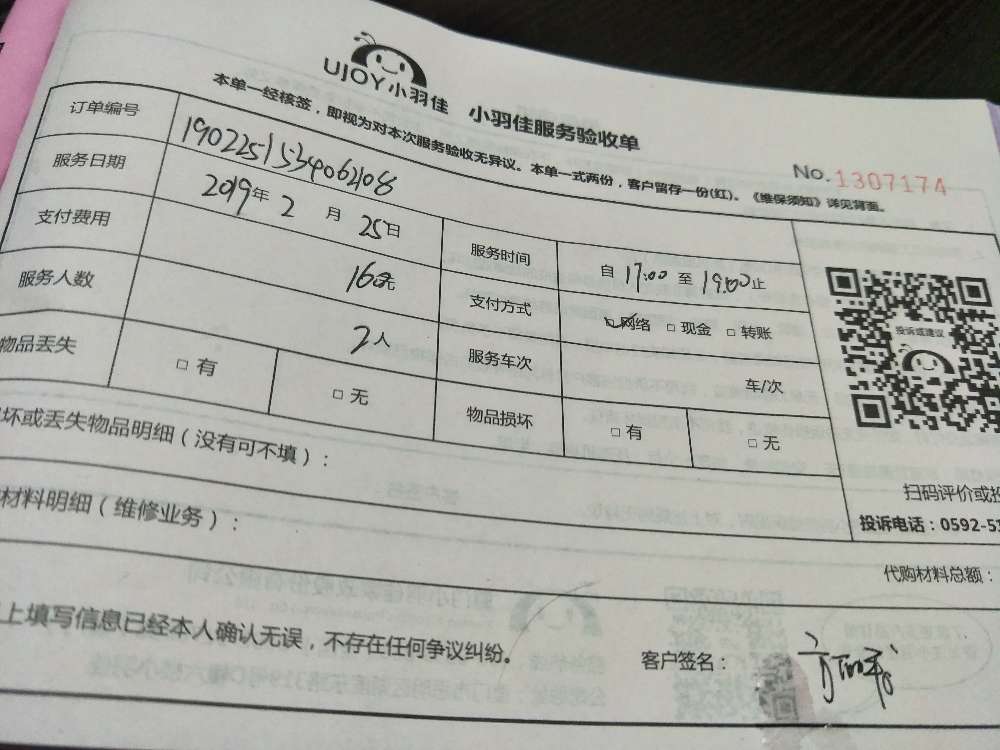 UJOY小羽佳 小羽佳服务验收单
本单一经核签，即视为对本次服务验收无异议。本单一式两份，客户留存一份(红)。《维保须知》详见背面。
No.1307174
订单编号 1902251534062108
服务日期 2019年 2 月 25日 服务时间 自 17:00 至 19:00止
支付费用 160元 支付方式 网络 现金 转账
服务人数 2人 服务车次 车/次
物品丢失 有 无 物品损坏 有 无
投诉或建议
坏或丢失物品明细（没有可不填）：
扫码评价或投
投诉电话：0592-53
材料明细（维修业务）：
代购材料总额：
上填写信息已经本人确认无误，不存在任何争议纠纷。
客户签名：